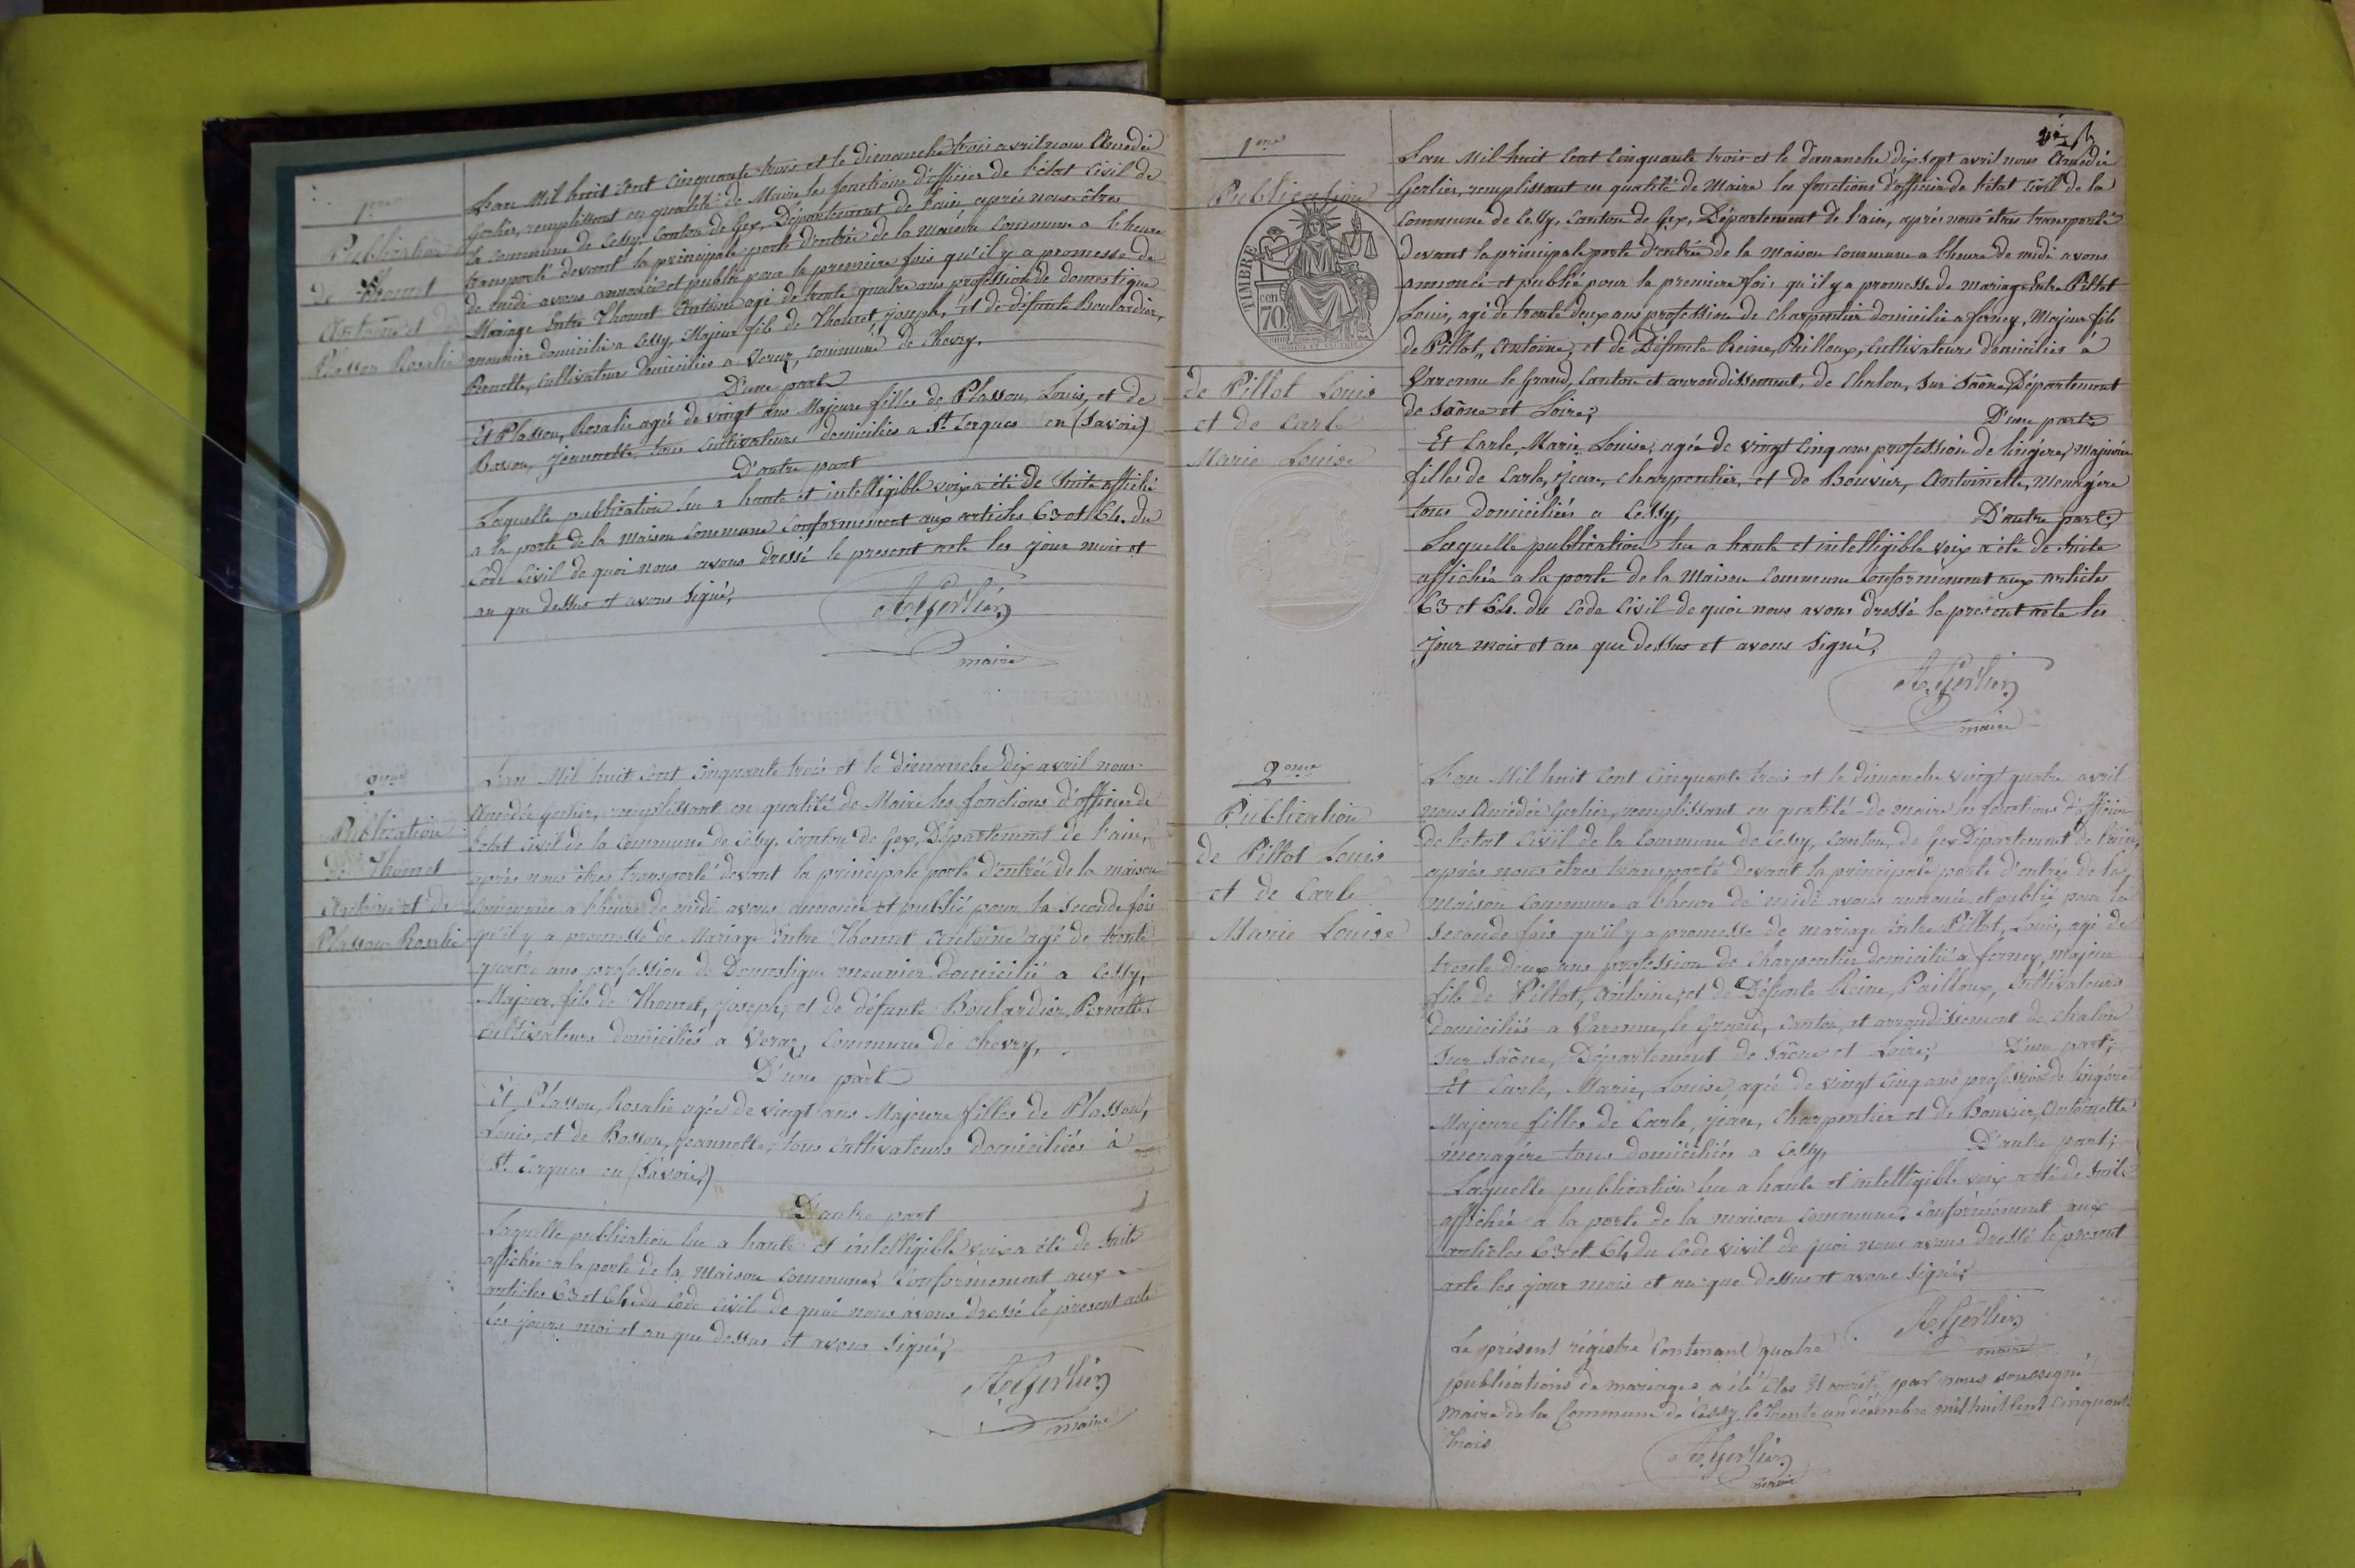 1ere
Publication
de Thouret
Antoine et de
Plasson Rosalie
L'an Mil huit Cent Cinquante trois et le dimanche trois avril nous Amédée
Gerlier, remplissant en qualité de Maire les fonctions d'officier de l'état Civil de
la commune de Cessy, Canton de Gex, Département de l'ain après nous êtres
transporté devant la principale porte d'entrée de la maison Commune a l'heure
de midi avons annoncé et publié pour la premiere fois qu'il y a promesse de
Mariage Entre Thouret Antoine agé de trente quatre ans profession de domestique
meunier domicilié a Cessy, Majeur fils de Thouret, joseph, et de défunte Boulardier,
Pernette, Cultivateurs domiciliés a Veraz, commune de Chevry,
D'une part
Et Plasson, Rosalie agée de vingt ans Majeure filles de Plasson, Louis, et de
Bosson, Jeannette, tous Cultivateurs domiciliés a St Cergues en (Savoie)
D'autre part
Laquelle publication lu a haute et intelligible voix a été de Suite affiché
a la porte de la Maison Commune Conformément aux articles 63 et 64. du
Code Civil de quoi nous avons dressé le present acte les jour mois et
an que dessus et avons Signé,
A. Gerlier
maire
2eme
Publication
de Thouret
Antoine et de
Plasson Rosalie
L'an Mil huit Cent Cinquante trois et le dimanche dix avril nous
Amédée Gerlier, remplissant en qualité de Maire les fonctions d'officier de
l'état Civil de la Commune de Cessy, Canton de Gex, Département de l'ain,
après nous êtres transporté devant la principale porte d'entrée de la maison
Commune a l'heure de midi avons annoncé et publié pour la Seconde fois
qu'il y a promesse de Mariage Entre Thouret Antoine agé de trente
quatre ans profession de Domestique meunier domicilié a Cessy,
Majeur, fils de Thouret, joseph, et de défunte Boulardier, Pernette,
cultivateurs domiciliés a Veraz, Commune de Chevry,
D'une part
Et Plasson, Rosalie agée de vingt ans Majeure filles de Plasson,
Louis, et de Bosson, Jeannette, tous Cultivateurs domiciliés à
St Cergues en (Savoie)
D'autre part
Laquelle publication lue a haute et intelligible voix a été de Suite
affichée a la porte de la Maison Commune, Conformement aux
articles 63 et 64. du Code Civil de quoi nous avons dressé le présent acte
les jours moi et an que dessus et avons Signé,
A. Gerlier
maire
1ere
Publication
TIMBRE
cen
70
de Pillot Louis
et de Carle
Marie Louise
L'an Mil huit Cent Cinquante trois et le dimanche dix Sept avril nous Amédée
Gerlier, remplissant en qualité de Maire les fonctions d'officier de l'état Civil de la
Commune de Cessy, Canton de Gex, Département de l'ain, après nous êtres transporté
devant la principale porte d'entrée de la maison commune a l'heure de midi avons
annoncé et publié pour la premiere fois, qu'il y a promesse de mariage Entre Pillot
Louis, agé de trente deux ans profession de charpentier domicilié a ferney, Majeur fils
de Pillot, Antoine, et de Défunte Reine, Pailloux, Cultivateurs domiciliés à
Varenne le Grand, Canton et arrondissement, de Chalon, Sur Saône, Département
de Saône et Loire;
D'une partre
Et Carle, Marie, Louise, agée de vingt Cinq ans profession de lingére, majeure
filles de Carle, jean, charpentier, et de Bouvier, Antoinette, Menagére
tous domiciliés a Cessy,
D'autre part.
Laquelle publication lue a haute et intelligible voix a été de Suite
affichée a la porte de la Maison Commune Conformément aux articles
63 et 64. du Code Civil de quoi nous avons dressé le present acte les
jour mois et an que dessus et avons Signé,
A. Gerlier
maire
2eme
Publication
de Pillot Louis
et de Carle
Marie Louise
L'an Mil huit Cent Cinquante trois et le dimanche vingt quatre avril
nous Amédée Gerlier, remplissant en qualité de maire les fonctions d'officier
de l'état Civil de la Commune de Cessy, Canton, de Gex Département de l'ain,
après nous êtres transporté devant la principale porte d'entrée de la
maison Commune a l'heure de midi avons annoncé et publié pour la
Seconde fois qu'il y a promesse de mariage Entre Pillot, Louis, agé de
trente deux ans profession de charpentier domicilié a ferney, majeur
fils de Pillot, Antoine, et de Défunte Reine, Pailloux, Cultivateurs
domiciliés a Varenne, le Grand, Canton, et arrondissement de Chalon
Sur Saône, Département de Saône et Loire;
D'une part;
Et Carle, Marie, Louise, agée de vingt Cinq ans profession de lingére
Majeure filles de Carle, jean, charpentier et de Bouvier, Antoinette
ménagére tous domiciliés a Cessy,
D'autre part;
Laquelle publication lue a haute et intelligible voix a été de Suite
affichée a la porte de la maison commune. Conformément aux
articles 63 et 64 du Code Civil de quoi nous avons dressé le present
acte les jour mois et an que dessus et avons Signé;
A. Gerlier
maire
Le présent régistre Contenant quatre
publications de mariages a été Clos et arrêté par nous soussigné
Maire de la Commune de Cessy le trente un décembre mil huit Cent Cinquante
trois
A. Gerlier
maire